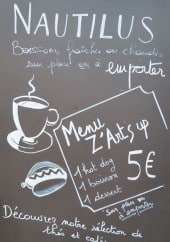 NAUTILUS
Boissons, fraîches ou chaudes,
sur place ou à emporter
Menu
Z'Arts up
1 hot dog
1 boisson
1 dessert
5€
sur place ou
à emporter
Découvrez notre sélection de
thés et cafés